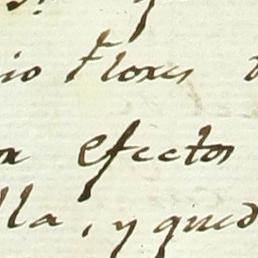 io Flores
efectos
lla, y qued